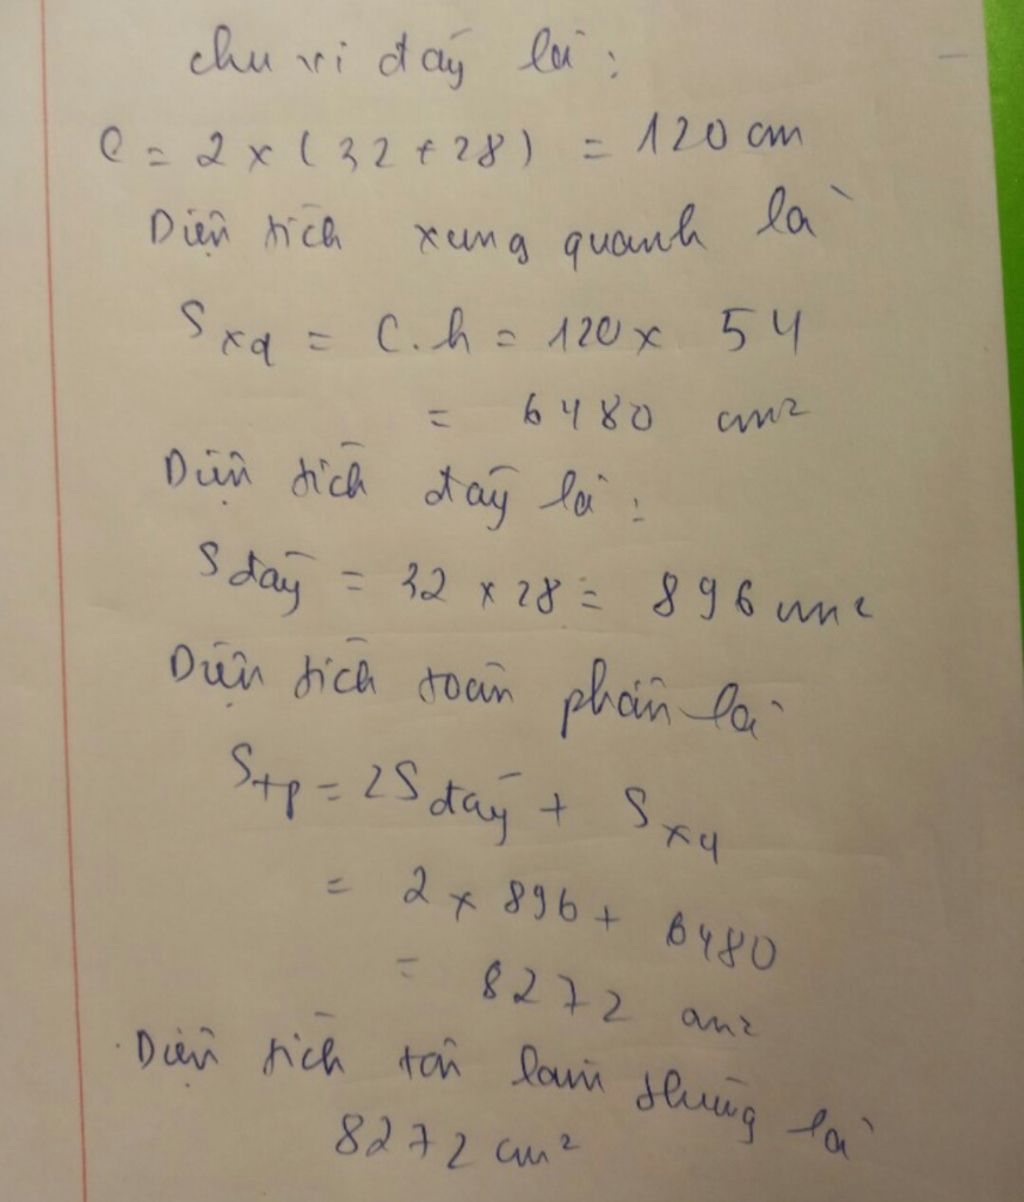 chu vi đáy là :
C = 2 x ( 32 + 28 ) = 120 cm
Diện tích xung quanh là
Sxq = C.h = 120 x 54
= 6480 cm²
Diện tích đáy là :
S đáy = 32 x 28 = 896 cm²
Diện tích toàn phần là
Stp = 2S đáy + Sxq
= 2 x 896 + 6480
= 8272 cm²
Diện tích tôn làm thùng là
8272 cm²